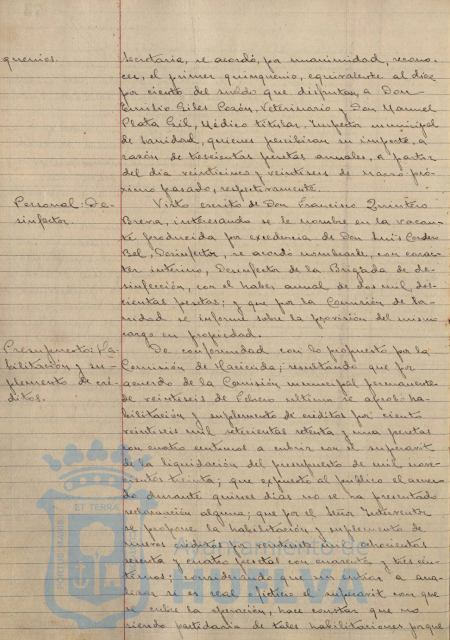 quenios.
Secretaría, se acordó, por unanimidad, recono-
cer, el primer quinquenio, equivalente al diez
por ciento del sueldo que disfrutan, a Don
Emilio Giles Pozón, Veterinario y Don Manuel
Plata Gil, Médico titular, Inspector municipal
de Sanidad, quienes percibirán su importe, a
razón de trescientas pesetas anuales, a partir
del día veinticinco y veintiseis de marzo pró-
ximo pasado, respectivamente.
Personal: De-
sinfector.
Visto escrito de Don Francisco Quintero
Breva, interesando se le nombre en la vacan-
te producida por excedencia de Don Luis Cordero
Bel, Desinfector, se acordó nombrarle, con carac-
ter interino, Desinfector de la Brigada de de-
sinfección, con el haber anual de dos mil dos-
cientas pesetas; y que por la Comisión de Sa-
nidad se informe sobre la provisión del mismo
cargo en propiedad.
Presupuesto: Ha-
bilitación y su-
plemento de cré-
ditos.
De conformidad con lo propuesto por la
Comisión de Hacienda; resultando que por
acuerdo de la Comisión municipal permanente
de veintiseis de Febrero último se aprobó ha-
bilitación y suplemento de créditos por ciento
veintiseis mil setecientas setenta y una pesetas
con cuatro centimos a cubrir con el superavit
de la liquidación del presupuesto de mil nove-
cientos treinta; que expuesto al público el acuer-
do durante quince días no se ha presentado
reclamación alguna; que por el Señor Interventor
se propone la habilitación y suplemento de
nuevos créditos por mil ochocientas
y cuatro pesetas con cuarenta y tres cen-
timos; considerando que sin entrar a ana-
lizar si es real o ficticio el superavit con que
se cubre la operación, hace constar que no
siendo partidaria de tales habilitaciones porque
ET TERRA
Ayuntamiento de
HUELVA